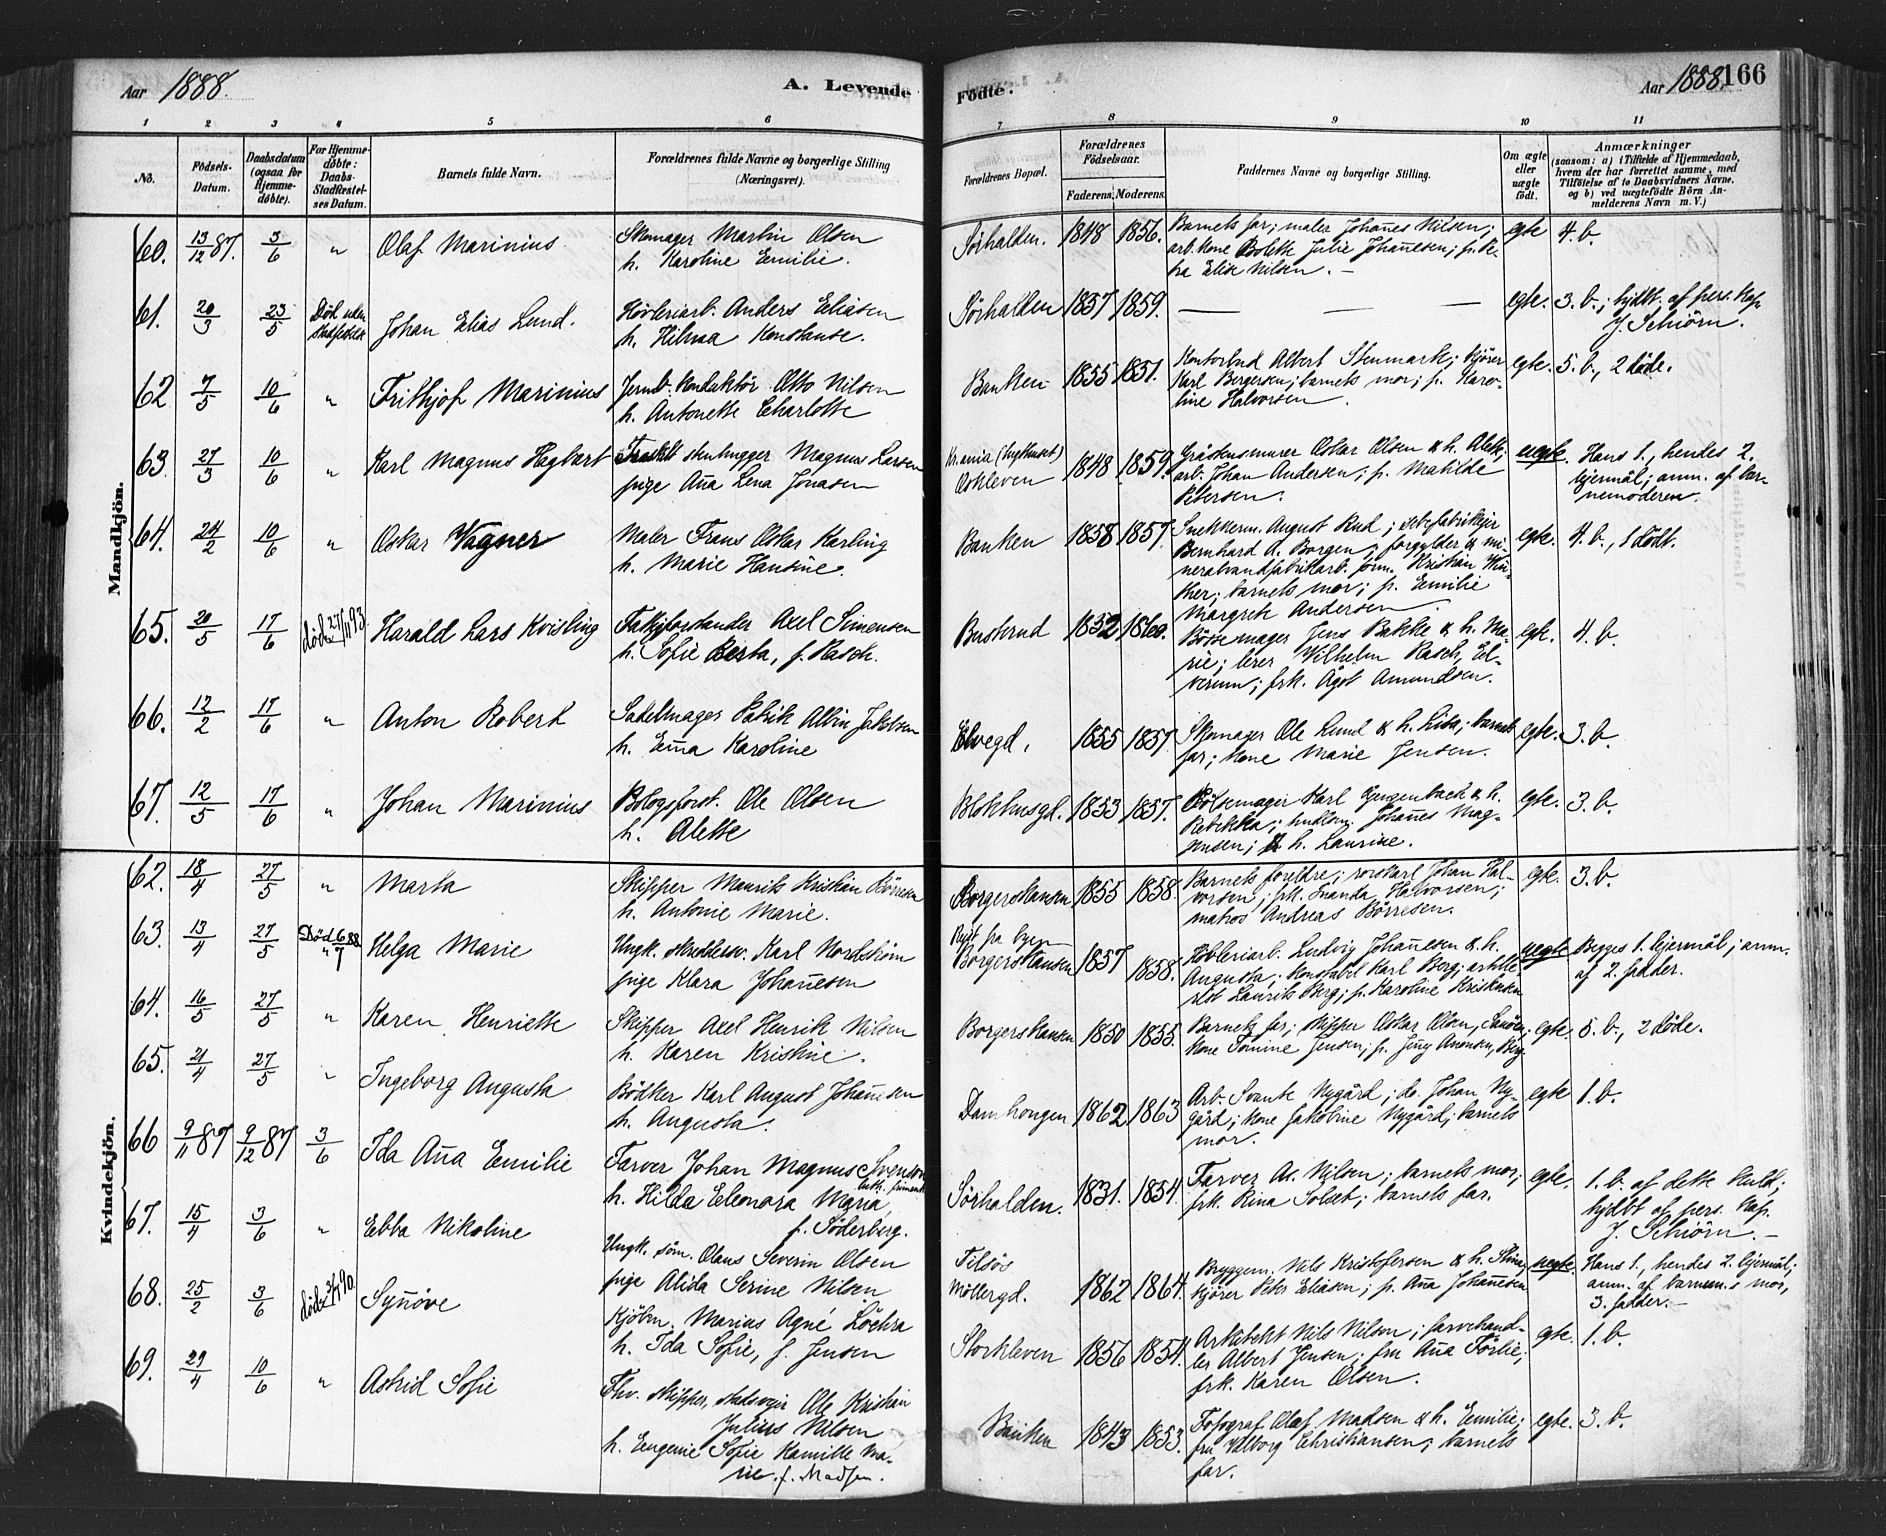 Aar 1888.
A. Levende
Födte.
Aar 1888.
166
1 2 3 4 5 6 7 8 9 10 11
No.
Födsels-Datum.
Daabsdatum (ogsaa for Hjemmedöbte).
For Hjemmedöbte: Daabs-Stadfæstelses Datum.
Barnets fulde Navn.
Forældrenes fulde Navne og borgerlige Stilling (Næringsvei).
Forældrenes Bopæl.
Forældrenes Födselsaar.
Faderens. Moderens.
Faddernes Navne og borgerlige Stilling.
Om ægte eller uægte födt.
Anmærkninger
(saasom: a) i Tilfælde af Hjemmedaab, hvem der har forrettet samme, med Tilföielse af to Daabsvidners Navne, og b) ved uægtefödte Börn Anmelderens Navn m. V.)
Mandkjön.
60. 13/12 87. 3/6 " Olaf Marinius
Skomager Martin Olsen
h. Karoline Emilie.
Sørhalden. 1848 1856.
Barnets far; maler Johannes Nilsen;
arb.kone Bolette Julie Johannesen; p. Pe-
tra Elise Nilsen. —
egte 4. b.
61. 20/3 23/5 Död uden stadfestelse Johan Elias Lund.
Høvleriarb. Anders Eliasen
h. Hilma Konstanse.
Sørhalden 1857 1859. — — —
egte. 3. b.; hjdbt. af pers. kap.
J. Schiörn.
62 7/5 10/6 " Frithjof Marinius
Jernb. konduktör Otto Nilsen
h. Antonette Charlotte
Banken 1855 1851.
Kontorbud Albert Stenmark; kjörer
Karl Bergersen; barnets mor; p. Karo-
line Halvorsen.
egte. 5. b., 2 döde.
63. 27/3 10/6 " Karl Magnus Hagbart
Fraskilt stenhugger Magnus Larsen
pige Anna Lena Jonasen
Kr.ania (sygehuset)
Oskleven 1848 1859.
Gråstensmurer Oskar Olsen & h. Alette;
arb. Johan Andersen; p. Matilde
Petersen.
uegte. Hans 1., hendes 2.
lejermål; anm. af bar-
nemoderen.
64. 24/2 10/6 " Oskar Vagner
Maler Frans Oskar Karling
h. Marie Hansine.
Banken 1858 1857.
Snekkerm. August Rud; sebefabrikejer
Bernhard A. Borgen; forgylder & mi-
neralvandfabrikarb. form. Kristian
barnets mor; p. Emilie
Margrete Andersen.
egte. 4. b., 1 dödt.
65. 20/5 17/6 död 27/11 93. Harald Lars Kvisling
Axel Simensen
h. Sofie Berta, f. Rasch.
Busterud 1852 1860.
Bössemager Jens Bakke & h. Ma-
rie; lærer Wilhelm Rasch, El-
verum; frk. Ågot Amundsen.
egte. 4. b.
66. 12/2 17/6 " Anton Robert
Sadelmager Patrik Albin Jakobsen
h. Emma Karoline
Elvegd. 1855 1857.
Skomager Ole Lund & h. Lisa; barnets
far; kone Marie Jensen.
egte. 3. b.
67. 12/5 17/6 " Johan Marinius
Bologsforst. Ole Olsen
h. Alette
Blokhusgd. 1853 1857.
Pölsemager Karl & h.
Rebekka; Johannes Mag-
nusen; & h. Laurine.
egte. 3. b.
Kvindekjön.
62. 18/4 27/5 " Marta
Skipper Maurits Kristian Börresen
h. Antonie Marie.
Borgershansen 1855 1858.
Barnets foreldre; rorskarl Johan Hal-
vorsen; frk. Inanda Halvorsen;
matros Andreas Börresen.
egte. 3. b.
63. 13/4 27/5 Död 6/7 88 Helga Marie
Ungk. skreddersv. Karl Nordström
pige Klara Johannesen
Rejst fra byen
Borgershansen 1857 1858.
Høvleriarb. Ludvig Johannesen & h.
Augusta; konstabel Karl Berg; artille-
rist Laurits Berg; p. Karoline Kristiansen
uegte Begges 1. lejermål; anm.
af 2. fadder.
64. 16/5 27/5 " Karen Henriette
Skipper Axel Henrik Nilsen
h. Karen Kristine.
Borgershansen 1850 1855.
Barnets far; skipper Oskar Olsen,
kone Tomine Jensen; p. Jenny Anonsen, Berg
egte. 5. b., 2 döde.
65. 21/4 27/5 " Ingeborg Augusta
Bödker Karl August Johannesen
h. Augusta.
Damhougen 1862 1863
Arb. Svante Nygård; do. Johan Ny-
gård; kone Jakobine Nygård; barnets
mor.
egte 1. b.
66 9/11 87 9/12 87 3/6 Ida Anna Emilie
Farver Johan Magnus Svenson
h. Hilda Eleonora Maria,
f. Söderberg.
Sørhalden. 1831. 1854.
Farver Ax. Nilsen; barnets mor;
frk. Rina Solset; barnets far.
egte. 1. b. af dette kuld;
hjdbt af pers. kap.
J. Schiörn. —
67. 15/4 3/6 " Ebba Nikoline
Ungk. söm. Olaus Severin Olsen
pige Alida Serine Nilsen
Tilsös
Möllergd. 1862 1864.
Bryggem. Nels Kristofersen & h. Stina;
kjörer Peter Eliasen; p. Anna Johannesen
uegte. Hans 1., hendes 2. lejermål;
anm. af barnets mor,
3. fadder. —
68. 25/2 3/6 död 3/4 90. Synnöve
Kjöbm. Marius Agné Löchra
h. Ida Sofie, f. Jensen
Storkleven 1856 1854.
Arkitekt Nils Nilson; farvehand-
ler Albert Jensen; fru Anna Förlie;
frk. Karen Olsen.
egte. 1. b.
69. 29/4 10/6 " Astrid Sofie
Fhv. skipper, stadsvejer Ole Kristian
Julius Nilsen
h. Eugenie Sofie Kamille Ma-
rie f. Madsen.
Banken 1843 1853.
Fotograf Olaf Madsen & h. Emilie;
fru Valborg Christiansen; barnets
far.
egte. 3. b.